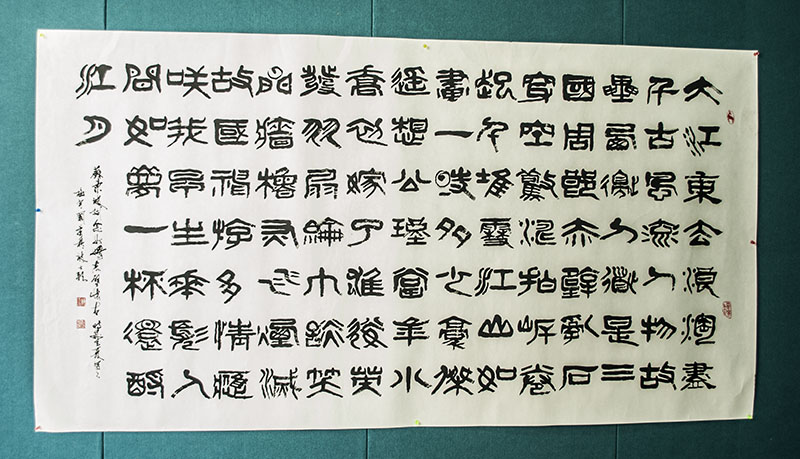 大江東去浪淘盡
千古風流人物故
壘西邊人道是三
國周郎赤壁亂石
穿空驚濤拍岸卷
起千堆雪江山如
畫一時多少豪傑
遥想公瑾當年小
喬初嫁了雄姿英
發羽扇綸巾談笑
間牆櫓灰飛煙滅
故國神游多情應
咲我早生華髮人
間如夢一杯還酹
江月
蘇東坡詞念奴嬌赤壁懷古